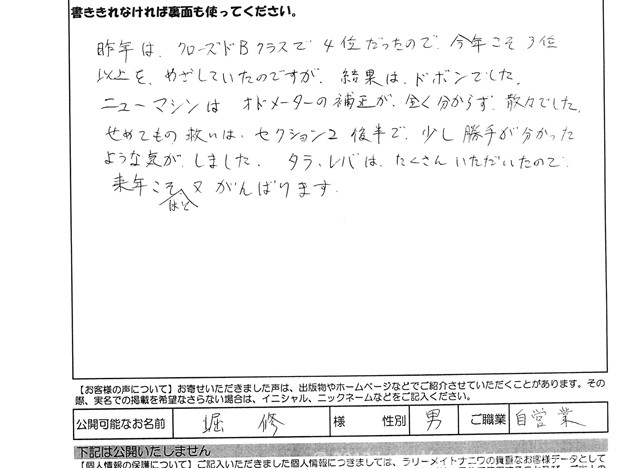 書ききれなければ裏面も使ってください。
昨年は、クローズドBクラスで4位だったので、今年こそ3位
以上を、めざしていたのですが、結果は、ドボンでした。
ニューマシンは オドメーターの補正が、全く分からず、散々でした。
せめてもの 救いは、セクション2 後半で、少し勝手が分かった
ような気が、しました。 タラ、レバは、たくさんいただいたので、
来年こそ又 がんばります。
【お客様の声について】お寄せいただきました声は、出版物やホームページなどでご紹介させていただくことがあります。その
際、実名での掲載を希望なさらない場合は、イニシャル、ニックネームなどをご記入ください。
公開可能なお名前 堀 修 様 性別 男 ご職業 自営業
下記は公開いたしません
【個人情報の保護について】ご記入いただきました個人情報につきましては、ラリーメイトナニワの貴重なお客様データとして